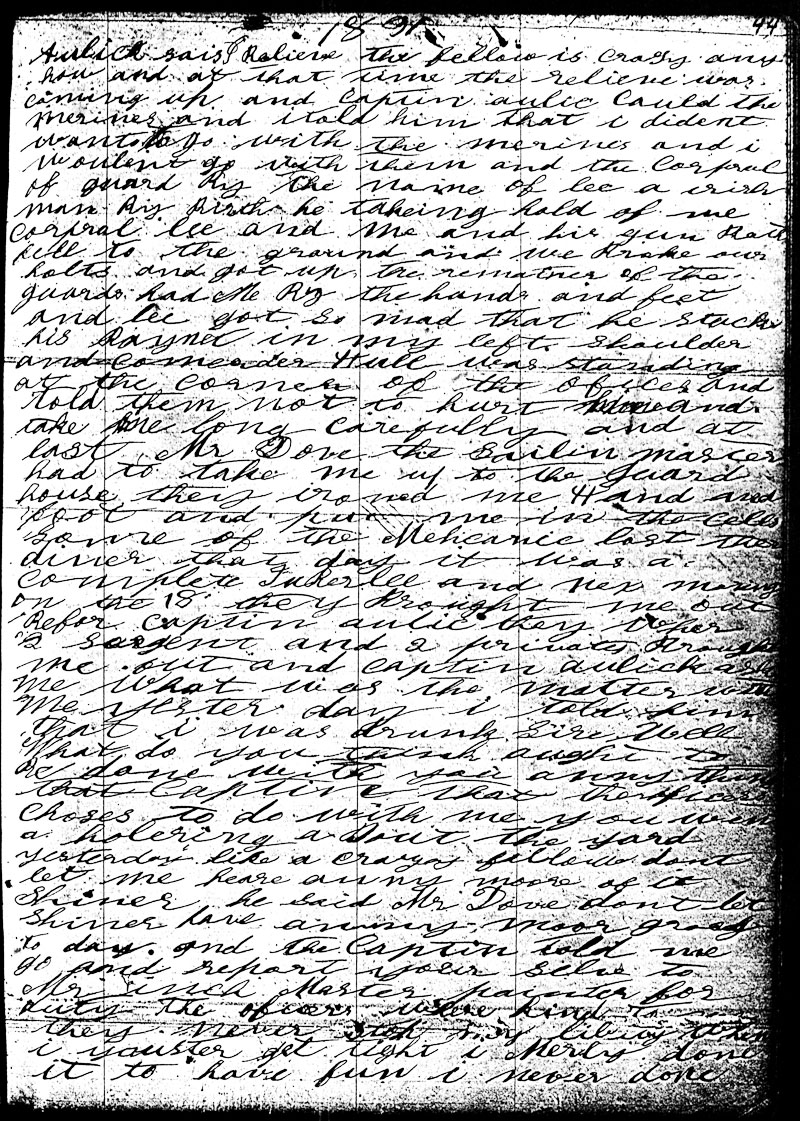 44
Aulick sais I Believe the fellow is crasy any
how and at that time the relieve was
coming up and Captin aulic Could the
merines and i told him that i dident
want to go with the merines and i
woulent go with them and the Corpral
of guard By the name of lee a irish
man By Birth he takeing hold of me
corpral lee and me and his gun
fell to the ground and we Broke our
holts and got up the remainer of the
guards had Me By the hands and feet
and lee got so mad that he stuck
his Baynet in my left shoulder
and comender Hull was standing
at the corner of the offices and
told them not to hurt and
take me long carefully and at
last Mr Dove the Sailin master
had to take me up to the guard
house they ironed me Hand and
foot and put me in the Cells
some of the Mehcanic lost
diner that day it was a
Complete and nex
on the 18 they Brought me out
Befor Captin aulic they
2 Sargent and 2 privates Brought
me out and captin aulick
me What was the matter with
Me yester day i told him
that i was drunk Sir Well
What do you think aught to
Be done with you anny thing
that Captin that
choses to do with me you
a holering a Bout the yard
yesterday like a crazy fellow dont
let me heare anny moore of it
Shiner he said Mr Dove dont let
Shiner have anny moor grog
to day. and the Captin told me
go and report your selve to
Mr Master painter for
duty the oficers where kind to
they never stop my
i youster get tight i Merly done
it to have fun i never done